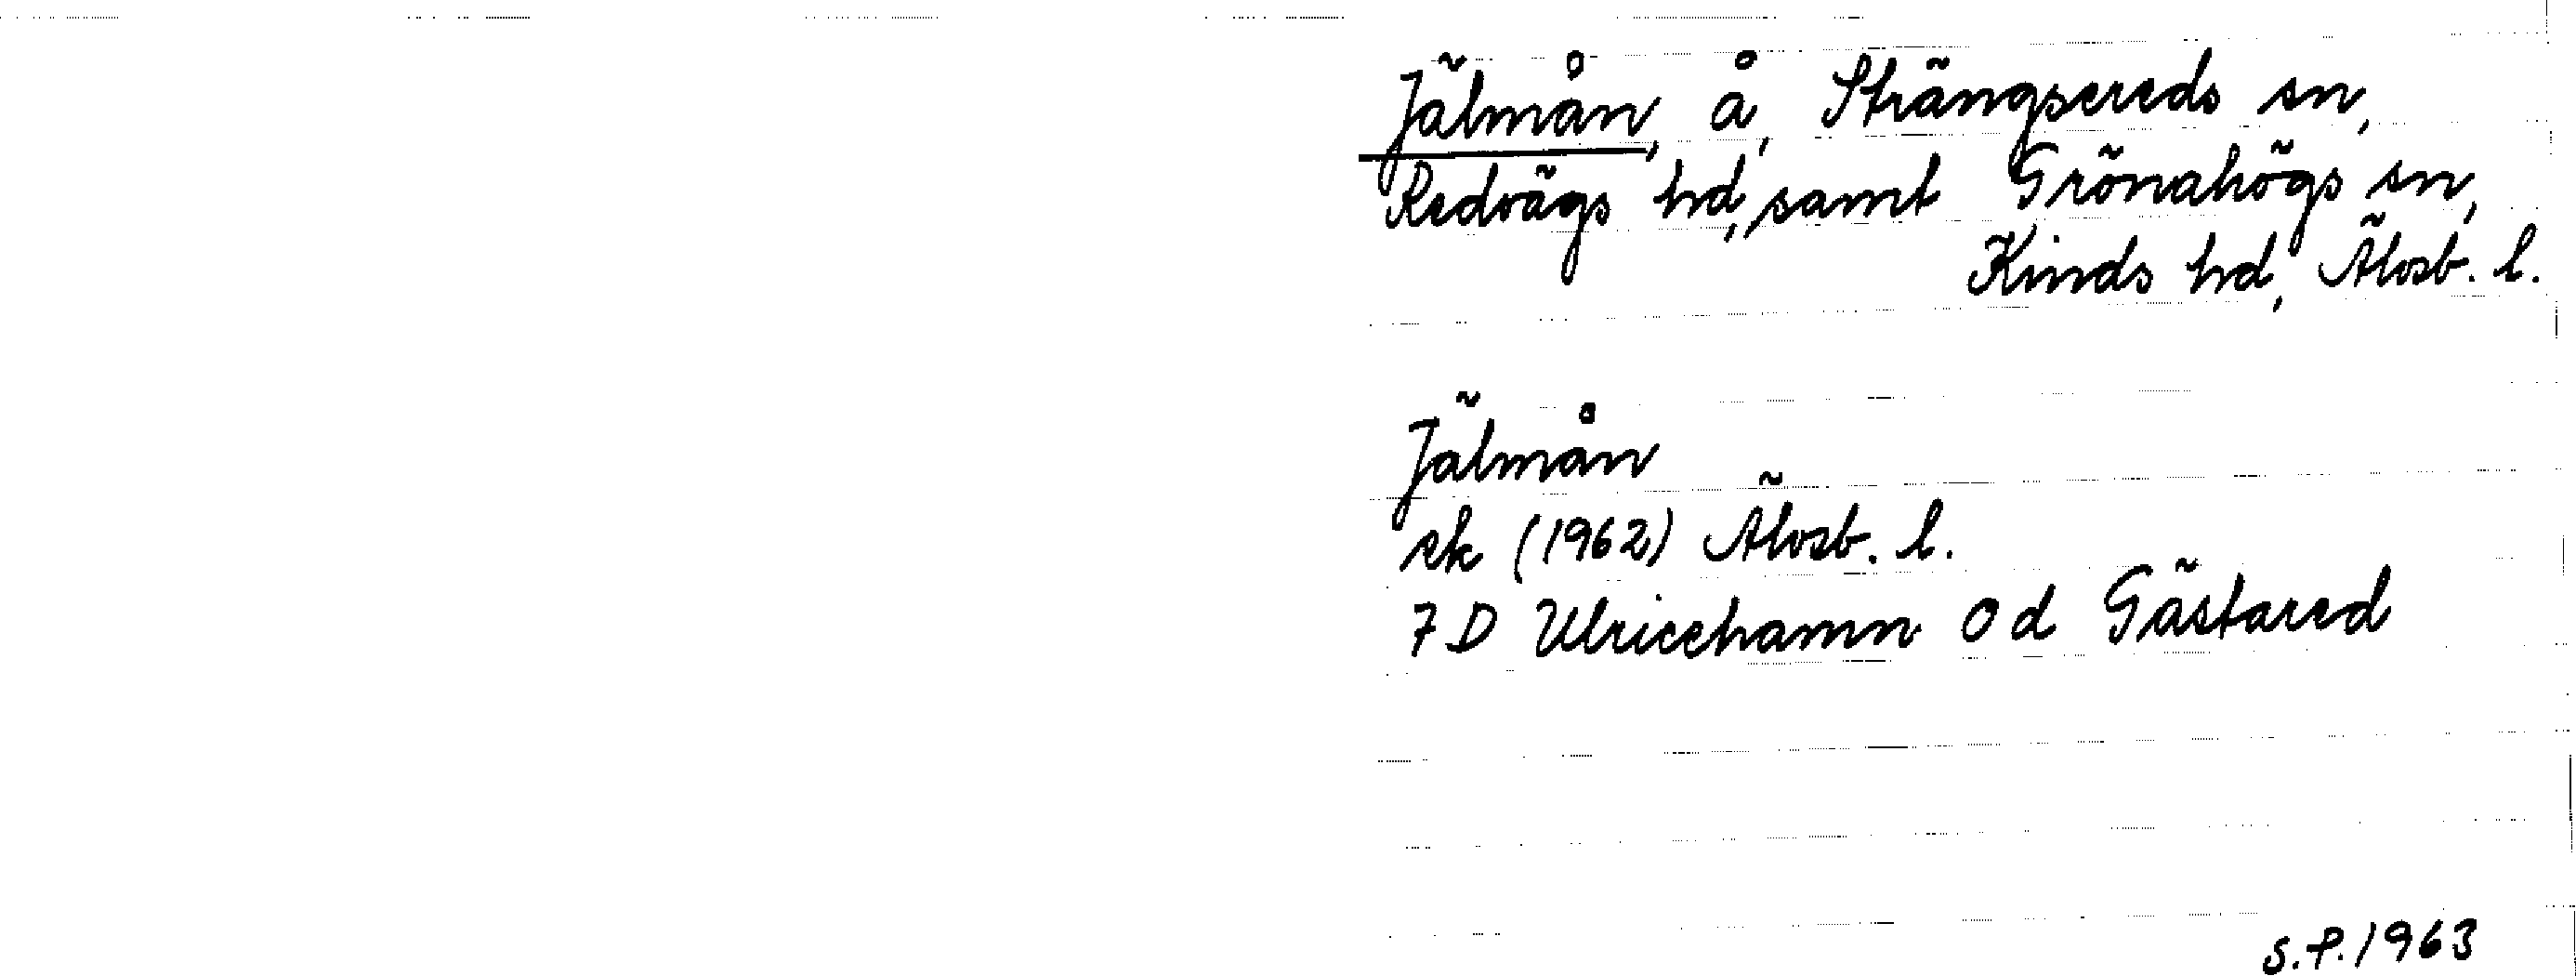 Jälmån, å, Strängsereds sn,
Redvägs hd, samt Grönahögs sn,
Kinds hd, Älvsb. l.
Jälmån
ek (1962) Älvsb. l.
7 D Ulricehamn 0 d Gästared
S.P. 1963